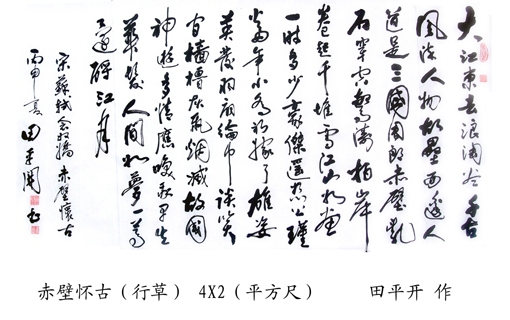 大江東去浪淘盡千古
風流人物故壘西邊人
道是三國周郎赤壁亂
石穿空驚濤拍岸
卷起千堆雪江山如畫
一時多少豪傑遥想公瑾
當年小喬初嫁了雄姿
英發羽扇綸巾談笑
間檣櫓灰飛烟滅故國
神遊多情應笑我早生
華髮人間如夢一尊
還酹江月
宋蘇軾念奴嬌赤壁懷古
丙申夏田平開書
赤壁怀古（行草） 4X2（平方尺） 田平开 作